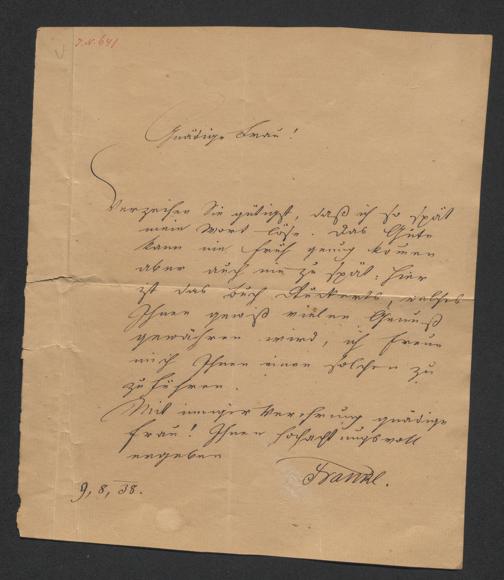 J.N. 641
Gnädige Frau!
Verzeihen Sie gütigst, daß ich so spät
mein Wort löse. Das Gute
kann nie früh genug kommen
aber auch nie zu spät: hier
ist das Buch Rückerts, welches
Ihnen gewiß vielen Genuß
gewähren wird, ich freue
mich Ihnen einen solchen zu
zu führen.
Mit inniger Verehrung gnädige
Frau! Ihnen hochachtungsvoll
ergeben
Frankl.
9, 8, 38.